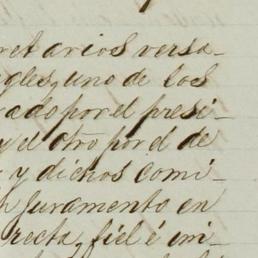 retarios versa-
gles, uno de los
ado por el presi-
y el otro por el de
y dichos comi-
juramento en
recta, fiel é im-